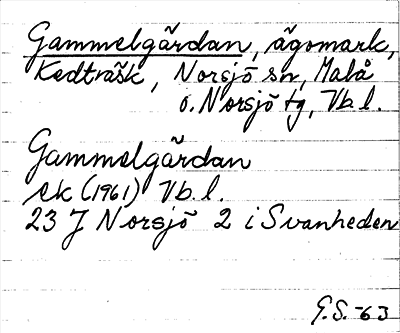 Gammelgårdan, ägomark,
Kedträsk, Norsjö sn, Malå
o. Norsjö tg, Vb. l.
Gammelgårdan
ek (1961) Vb. l.
23 J Norsjö 2 i Svanheden
G.S. -63